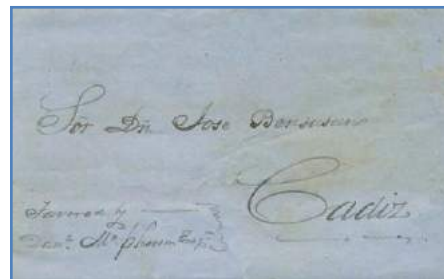 Sor Dn Jose Bensusan
Cadiz
Favored by
Danl. Esqr.